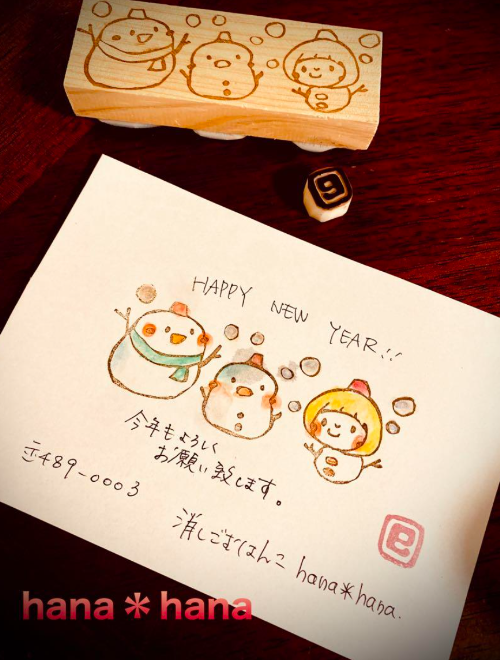 HAPPY NEW YEAR!!
今年もよろしく
お願い致します。
〒489-0003
消しごむはんこ hana*hana.
hana*hana